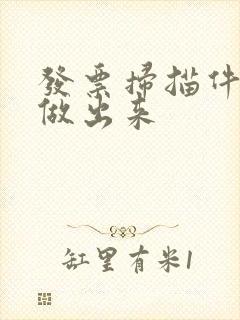 發票掃描件
做出来
缸里有米1